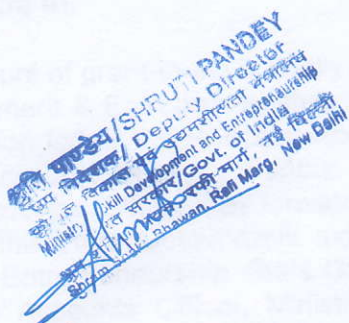 श्रुति पाण्डेय/SHRUTI PANDEY
उप निदेशक/Deputy Director
कौशल विकास एवं उद्यमशीलता मंत्रालय
Ministry Skill Development and Entrepreneurship
भारत सरकार/Govt. of India
श्रम रफी मार्ग, नई दिल्ली
Shram Bhawan, Rafi Marg, New Delhi